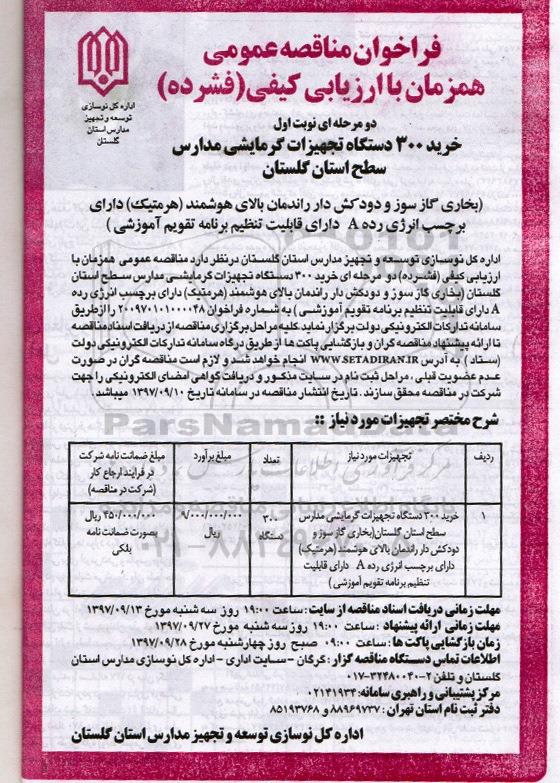 فراخوان مناقصه عمومی
همزمان با ارزیابی کیفی (فشرده)
دو مرحله ای نوبت اول
خرید ۳۰۰ دستگاه تجهیزات گرمایشی مدارس
سطح استان گلستان
اداره کل نوسازی
توسعه و تجهیز
مدارس استان
گلستان
(بخاری گاز سوز و دودکش دار راندمان بالای هوشمند (هرمتیک) دارای
برچسب انرژی رده A دارای قابلیت تنظیم برنامه تقویم آموزشی )
اداره کل نوسازی توسعه و تجهیز مدارس استان گلستان درنظر دارد مناقصه عمومی همزمان با
ارزیابی کیفی (فشرده) دو مرحله ای خرید ۳۰۰ دستگاه تجهیزات گرمایشی مدارس سطح استان
گلستان (بخاری گاز سوز و دودکش دار راندمان بالای هوشمند (هرمتیک) دارای برچسب انرژی رده
A دارای قابلیت تنظیم برنامه تقویم آموزشی ) به شماره فراخوان ۲۰۰۹۷۰۱۰۱۰۰۰۰۴۸ را از طریق
سامانه تدارکات الکترونیکی دولت برگزار نماید کلیه مراحل برگزاری مناقصه از دریافت اسناد مناقصه
تا ارائه پیشنهاد مناقصه گران و بازگشایی پاکت ها از طریق درگاه سامانه تدارکات الکترونیکی دولت
(ستاد ) به آدرس WWW.SETADIRAN.IR انجام خواهد شد و لازم است مناقصه گران در صورت
عدم عضویت قبلی ، مراحل ثبت نام در سایت مذکور و دریافت گواهی امضای الکترونیکی را جهت
شرکت در مناقصه محقق سازند . تاریخ انتشار مناقصه در سامانه تاریخ ۱۳۹۷/۰۹/۱۰ میباشد
شرح مختصر تجهیزات مورد نیاز ::
ردیف تجهیزات مورد نیاز تعداد مبلغ برآورد مبلغ ضمانت نامه شرکت
در فرایند ارجاع کار
(شرکت در مناقصه)
۱ خرید ۳۰۰ دستگاه تجهیزات گرمایشی مدارس ۳۰۰ ۹/۰۰۰/۰۰۰/۰۰۰ ۴۵۰/۰۰۰/۰۰۰ ریال
سطح استان گلستان(بخاری گاز سوز و دستگاه ریال بصورت ضمانت نامه
دودکش دار راندمان بالای هوشمند (هرمتیک) بانکی
دارای برچسب انرژی رده A دارای قابلیت
تنظیم برنامه تقویم آموزشی )
مهلت زمانی دریافت اسناد مناقصه از سایت : ساعت ۱۹:۰۰ روز سه شنبه مورخ ۱۳۹۷/۰۹/۱۳
مهلت زمانی ارائه پیشنهاد : ساعت ۱۹:۰۰ روز سه شنبه مورخ ۱۳۹۷/۰۹/۲۷
زمان بازگشایی پاکت ها : ساعت ۰۹:۰۰ صبح روز چهارشنبه مورخ ۱۳۹۷/۰۹/۲۸
اطلاعات تماس دستگاه مناقصه گزار : گرگان - سایت اداری - اداره کل نوسازی مدارس استان
گلستان و تلفن ۲-۳۲۴۸۰۰۴۰-۰۱۷
مرکز پشتیبانی و راهبری سامانه: ۰۲۱۴۱۹۳۴
دفتر ثبت نام استان تهران : ۸۸۹۶۹۷۳۷ و ۸۵۱۹۳۷۶۸
اداره کل نوسازی توسعه و تجهیز مدارس استان گلستان
ParsNamadData